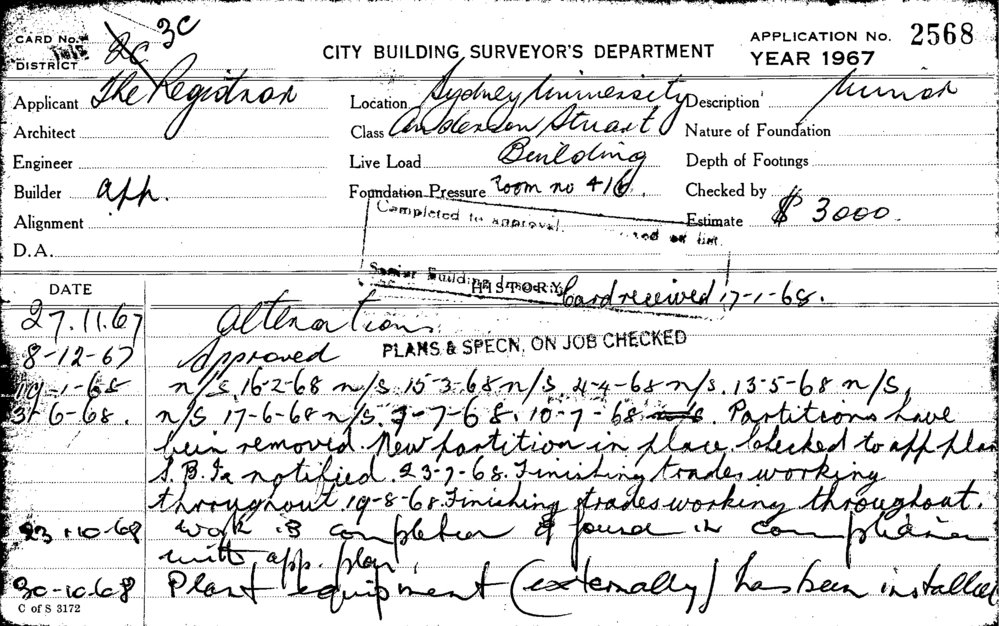 CARD No. 3C
DISTRICT 2C
CITY BUILDING SURVEYOR'S DEPARTMENT
APPLICATION No. 2568
YEAR 1967
Applicant The Registrar
Location Sydney University
Description Minor
Architect
Class Anderson Stuart
Nature of Foundation
Engineer
Live Load Building
Depth of Footings
Builder app.
Foundation Pressure Room no 416.
Checked by
Alignment
Completed to approval.
Estimate $ 3000.
D.A.
Senior Building
DATE
HISTORY
Card received 17-1-68.
27.11.67 Alterations
8-12-67 Approved PLANS & SPECN. ON JOB CHECKED
19-1-68 n/S. 16-2-68 n/s. 15-3-68 n/s. 4-4-68 n/s. 13-5-68 n/s.
3-6-68. n/s 17-6-68 n/s. 3-7-68. 10-7-68. Partitions have
been removed. New partition in place. Checked to app plan
S.B.I. notified. 23-7-68. Finishing trades working
throughout 19-8-68 Finishing trades working throughout.
23.10.68 Work is completed & found in compliance
with app. plan.
30-10-68 Plant equipment (externally) has been installed
C of S 3172